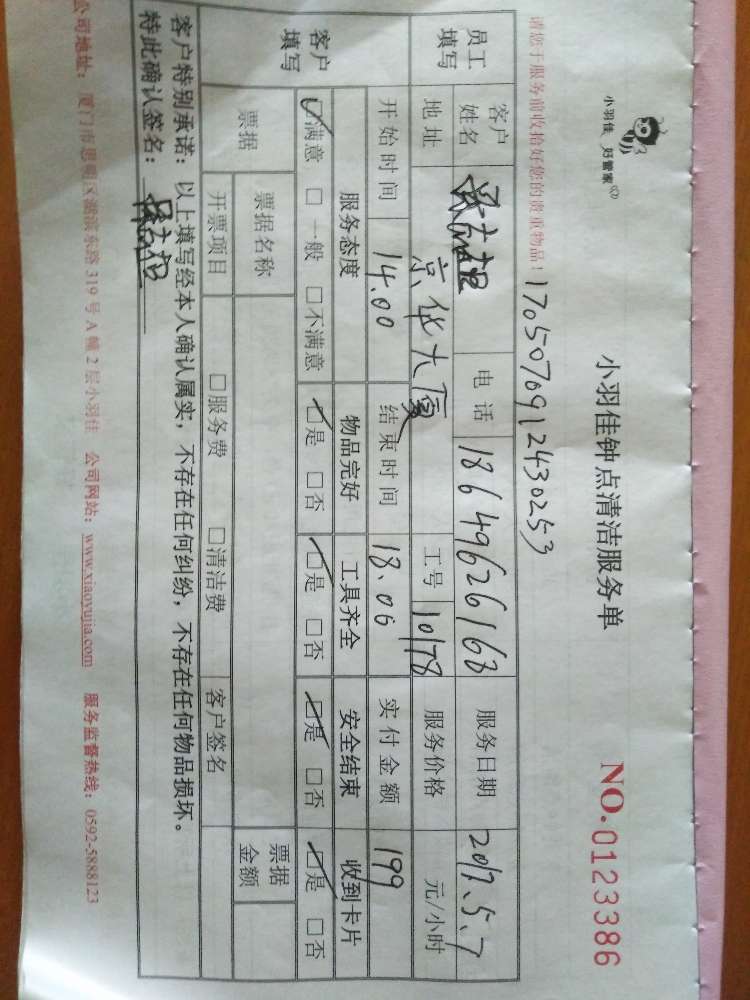 小羽佳 好管家
小羽佳钟点清洁服务单
NO.0123386
请您于服务前收拾好您的贵重物品！ 1705070912430253
员工填写 客户姓名 电话 18649626163 服务日期 2017.5.7
地址 京华大厦 工号 10178 服务价格 元/小时
客户填写 开始时间 14.00 结束时间 18.06 实付金额 199
服务态度 物品完好 工具齐全 安全结束 收到卡片
☑满意 □一般 □不满意 ☑是 □否 ☑是 □否 ☑是 □否 ☑是 □否
票据 票据名称 票据金额
开票项目 □服务费 □清洁费 客户签名
客户特别承诺：以上填写经本人确认属实，不存在任何纠纷，不存在任何物品损坏。
特此确认签名：
公司地址：厦门市思明区湖滨东路 319 号 A 幢 2 层小羽佳 公司网站：www.xiaoyujia.com 服务监督热线：0592-5888123